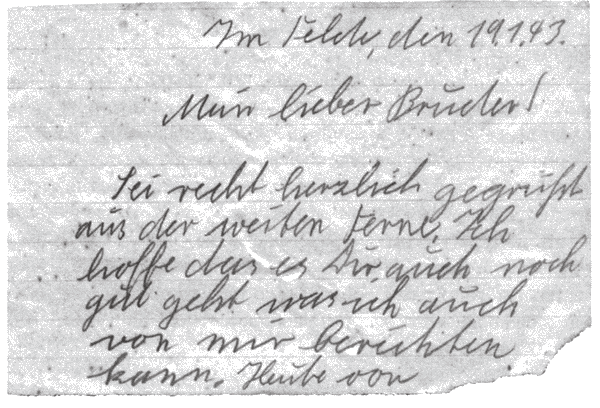 Im Felde, den 19.1.43.
Mein lieber Bruder!
Sei recht herzlich gegrüßt
aus der weiten Ferne. Ich
hoffe das es Dir auch noch
gut geht was ich auch
von mir berichten
kann. Heute vor